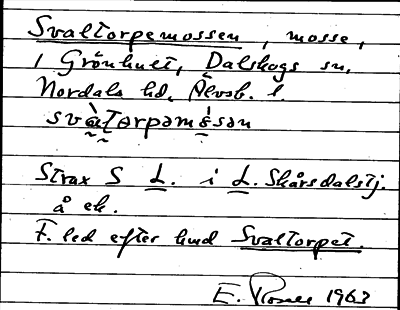 Svaltorpemossen, mosse,
i Grönhult, Dalskogs sn,
Nordals hd, Älvsb. l.
Strax S L. i L. Skårsdalstj.
å ek.
F. led efter hmd Svaltorpet.
E. 1963